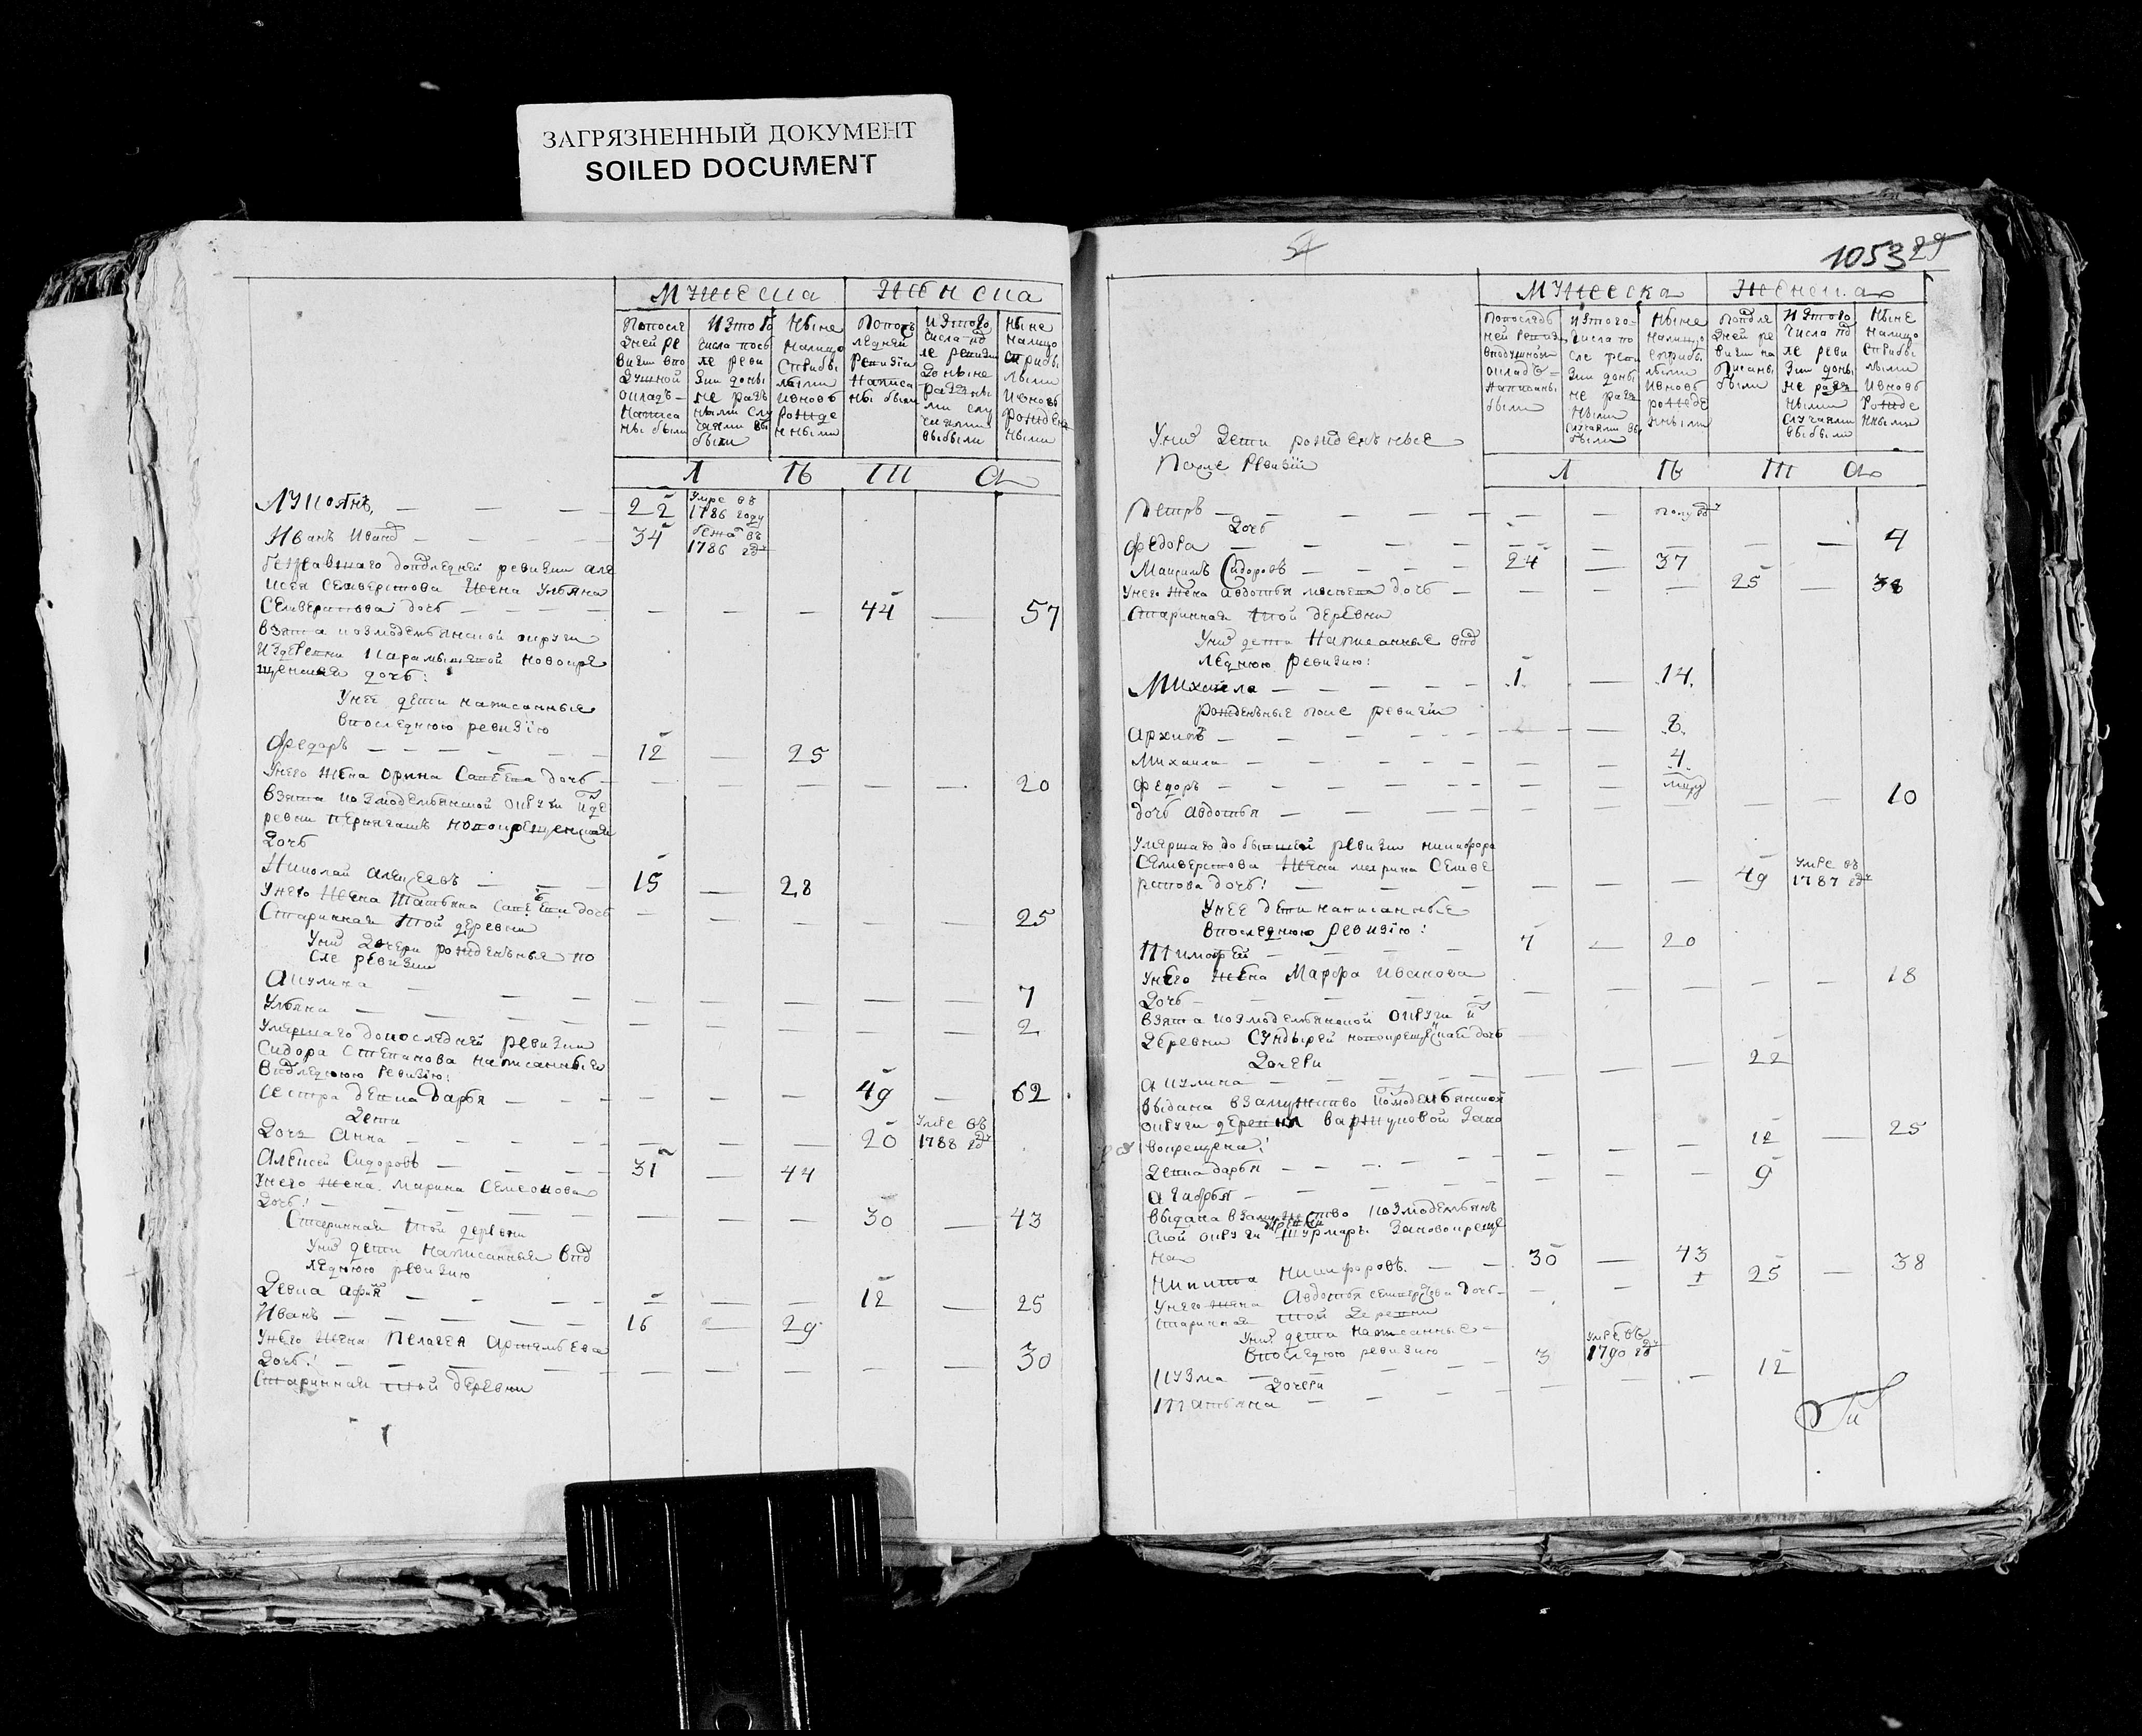 ЗАГРЯЗНЕННЫЙ ДОКУМЕНТ
SOILED DOCUMENT
Мужеска Женска
Попосле дней ре визии впо душной окладъ написа ны были
Изтого числа посъ ле реви зии доны не разъ ными слу чаями вы были
Ныне налицо сприбы лыми ивновь рожде нными
Попось ледней ревизии написа ны были
Изтого числа по ле ревизии доныне разны ми слу чаями выбыли
Ныне налицо сприбы лыми ивновь рожден ными
Л Тъ Ш А
Лукоянъ 22 Умре въ 1786 году
Иванъ Иванов 34 бежа въ 1786 году
Бежавшаго допоследней ревизии Але
ксея Селиверстова жена Ульяна
Селиверстова дочь 44 57
взята козмодемьянской округи
издеревни новокре
щенская дочь:
Унее дети написанные
впоследнюю ревизию
Федоръ 12 25
Унего жена Орина дочь 20
взята козмодемьянской округи изде
ревни новокрещенская
дочь
Николай Алексеевъ 15 28
Унего жена Татьяна дочь
Старинная той деревни 25
Уних дочери рожденные по
сле ревизии
Акулина 7
Ульяна 2
Умершаго допоследней ревизии
Сидора Степанова написанные
впоследнюю ревизию:
Сестра девка Дарья 49 62
Дети
Дочь Анна 20 Умре въ 1788 году
Алексей Сидоровъ 31 44
Унего жена Марина Семенова
Дочь! 30 43
Старинная той деревни
Уних дети написанные впо
следнюю ревизию
Девка 12 25
Иванъ 16 29
Унего жена Пелагея Артемьева
Дочь! 30
Старинная той деревни
1053 29
Мужеска Женска
Попоследъ ней ревизии вподушной окладъ написаны были
Изтого числа по сле реви зии доны не разъ ными случаями вы были
Ныне налицо сприбы лыми ивновь рожде нными
Попосле дней ре визии на писаны были
Изтого числа по ле реви зии доны не разъ ными случаями выбыли
Ныне налицо сприбы лыми ивновь рожде нными
Уних дети рожденъные
После ревизии
Л Тъ Ш А
Петръ полугоду
Дочь
Федора 4
Максимъ Сидоровъ 24 37
Унего жена Авдотья дочь 25 38
Старинная той деревни
Уних дети написанные впо
следнюю ревизию:
Михайла 1 14
рожденъные после ревизии
Архипъ 8
Михаила 4
Федоръ
дочь Авдотья 10
Умершаго до бывшей ревизии Никифора
Селиверстова жена Марина Селиве
рстова дочь! 49 Умре въ 1787 году
Унее дети написанные
впоследнюю ревизию!
Тимофей 7 20
Унего жена Марфа Иванова
Дочь 18
взята козмодемьянской округи из
деревни Сундырей новокрещенская дочь
Дочери
Акулина 22
выдана взамужство козмодемьянской
округи деревни зано
вокрещена!
Девка Дарья 12 25
Агафья 9
выдана взамужство козмодемьянъ
ской округи деревни Шурмаръ зановокреще
на
Никита Никифоровъ 30 43
Унего жена Авдотья дочь 25 38
Старинная той деревни
Уних дети написанные
впоследнюю ревизию
Кузма 3 Умре въ 1790 году
Дочери
Татьяна 12